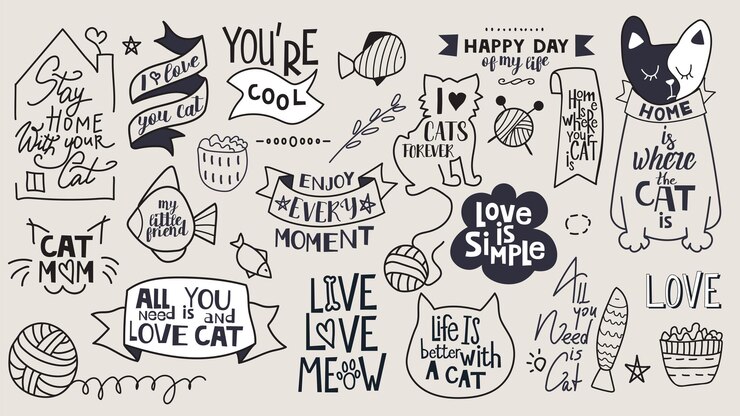 Stay
HOME
With your
Cat
I ♥ love
you cat
YOU'RE
COOL
HAPPY DAY
of my life
I ♥
CATS
FOREVER
Home
is
where
your
CAT
is
HOME
is
where
the
CAT
is
my
little
friend
ENJOY
EVERY
MOMENT
Love
is
SIMPLE
CAT
MOM
ALL YOU
Need is and
LOVE CAT
LIVE
LOVE
MEOW
Life IS
better with
A CAT
All
you
Need
is
Cat
LOVE